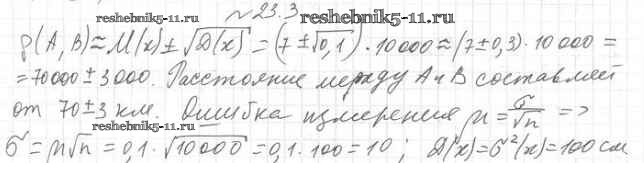 №23.3
reshebnik5-11.ru reshebnik5-11.ru
ρ(A,B)≈M(x)±√D(x)=(7±√0,1)·10000≈(7±0,3)·10000=
=70000±3000. Расстояние между A и B составляет
от 70±3 км. Ошибка измерения μ=σ/√n =>
reshebnik5-11.ru
σ=μ√n=0,1·√10000=0,1·100=10; D(x)=σ²(x)=100 см